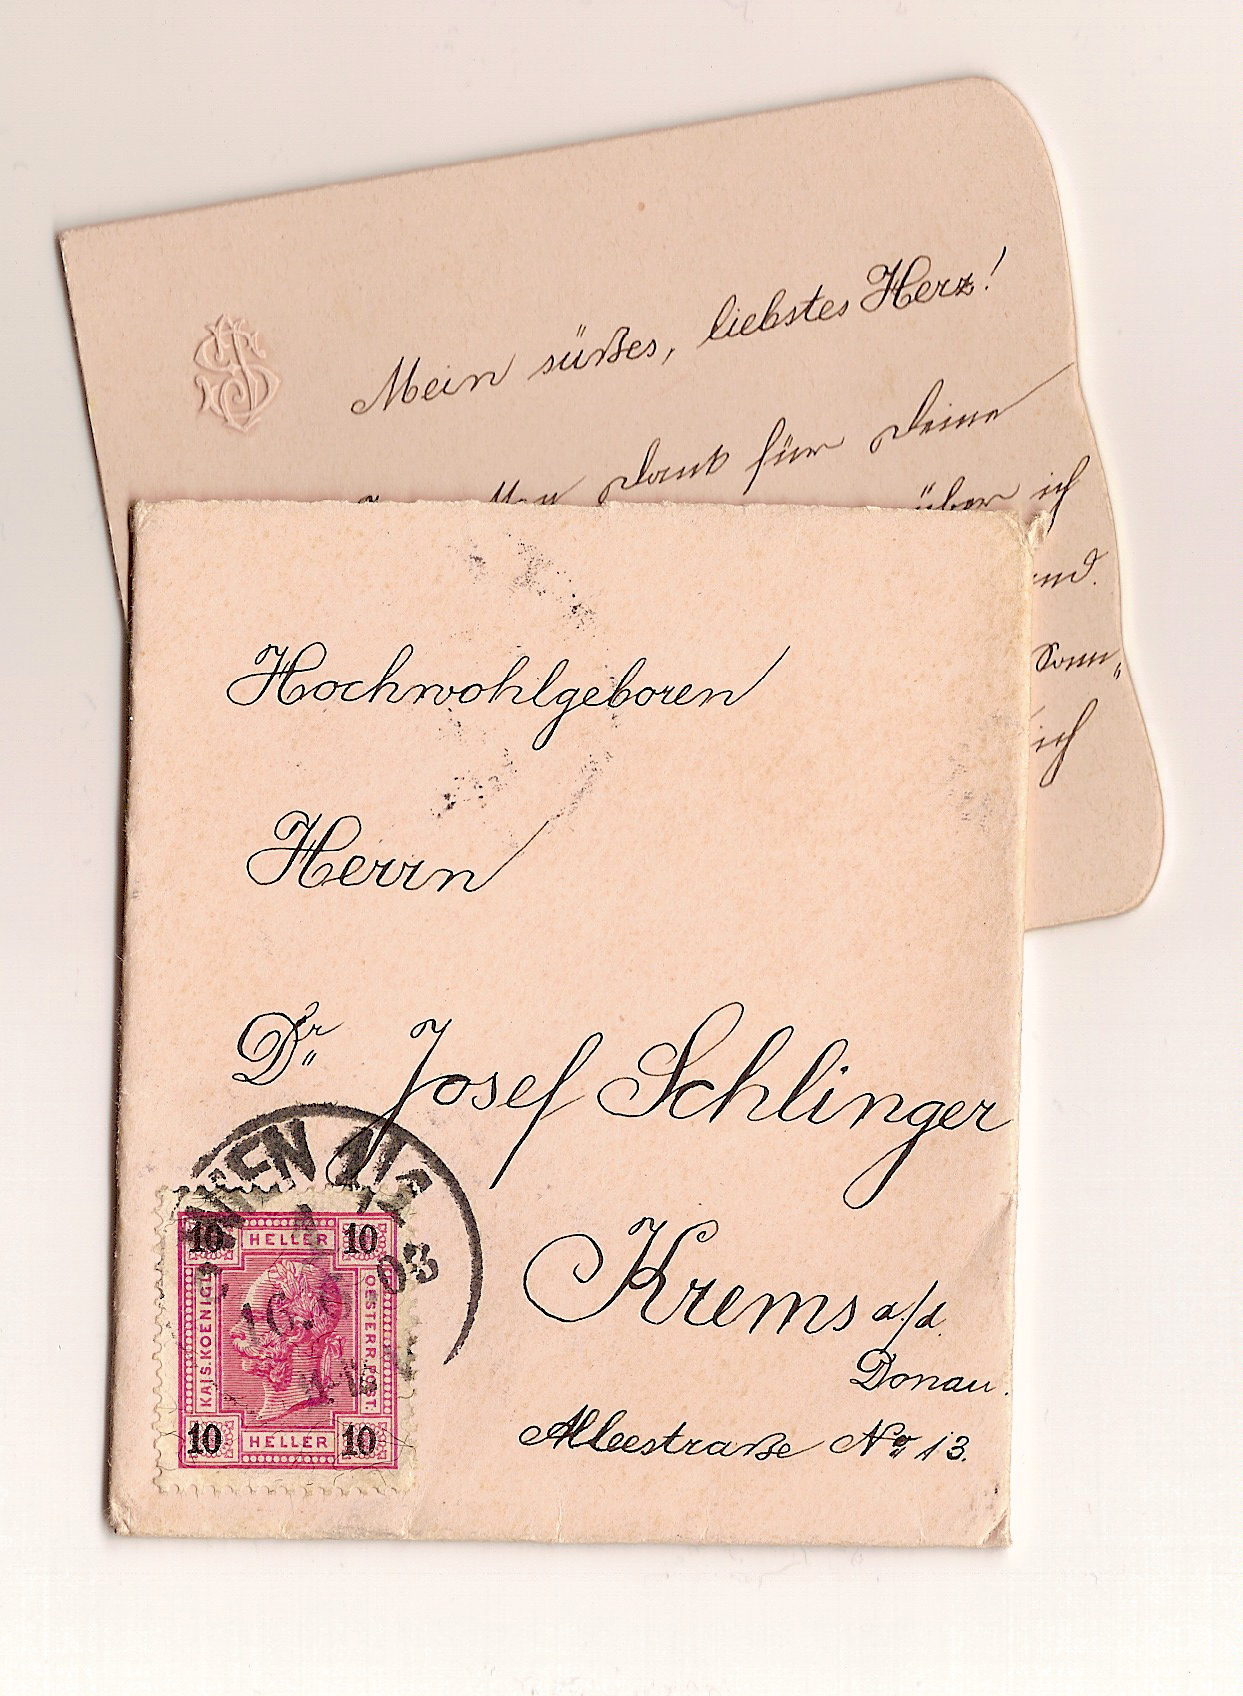 Mein süßes, liebstes Herz!
Dank für Deine
über ich
Sonn„
ich
Hochwohlgeboren
Herrn
Dr. Josef Schlinger
Krems a/d.
Donau.
Alleestraße No 13.
WIEN
10 HELLER 10
KAIS. KOENIGL.
OESTERR. POST.
10 HELLER 10